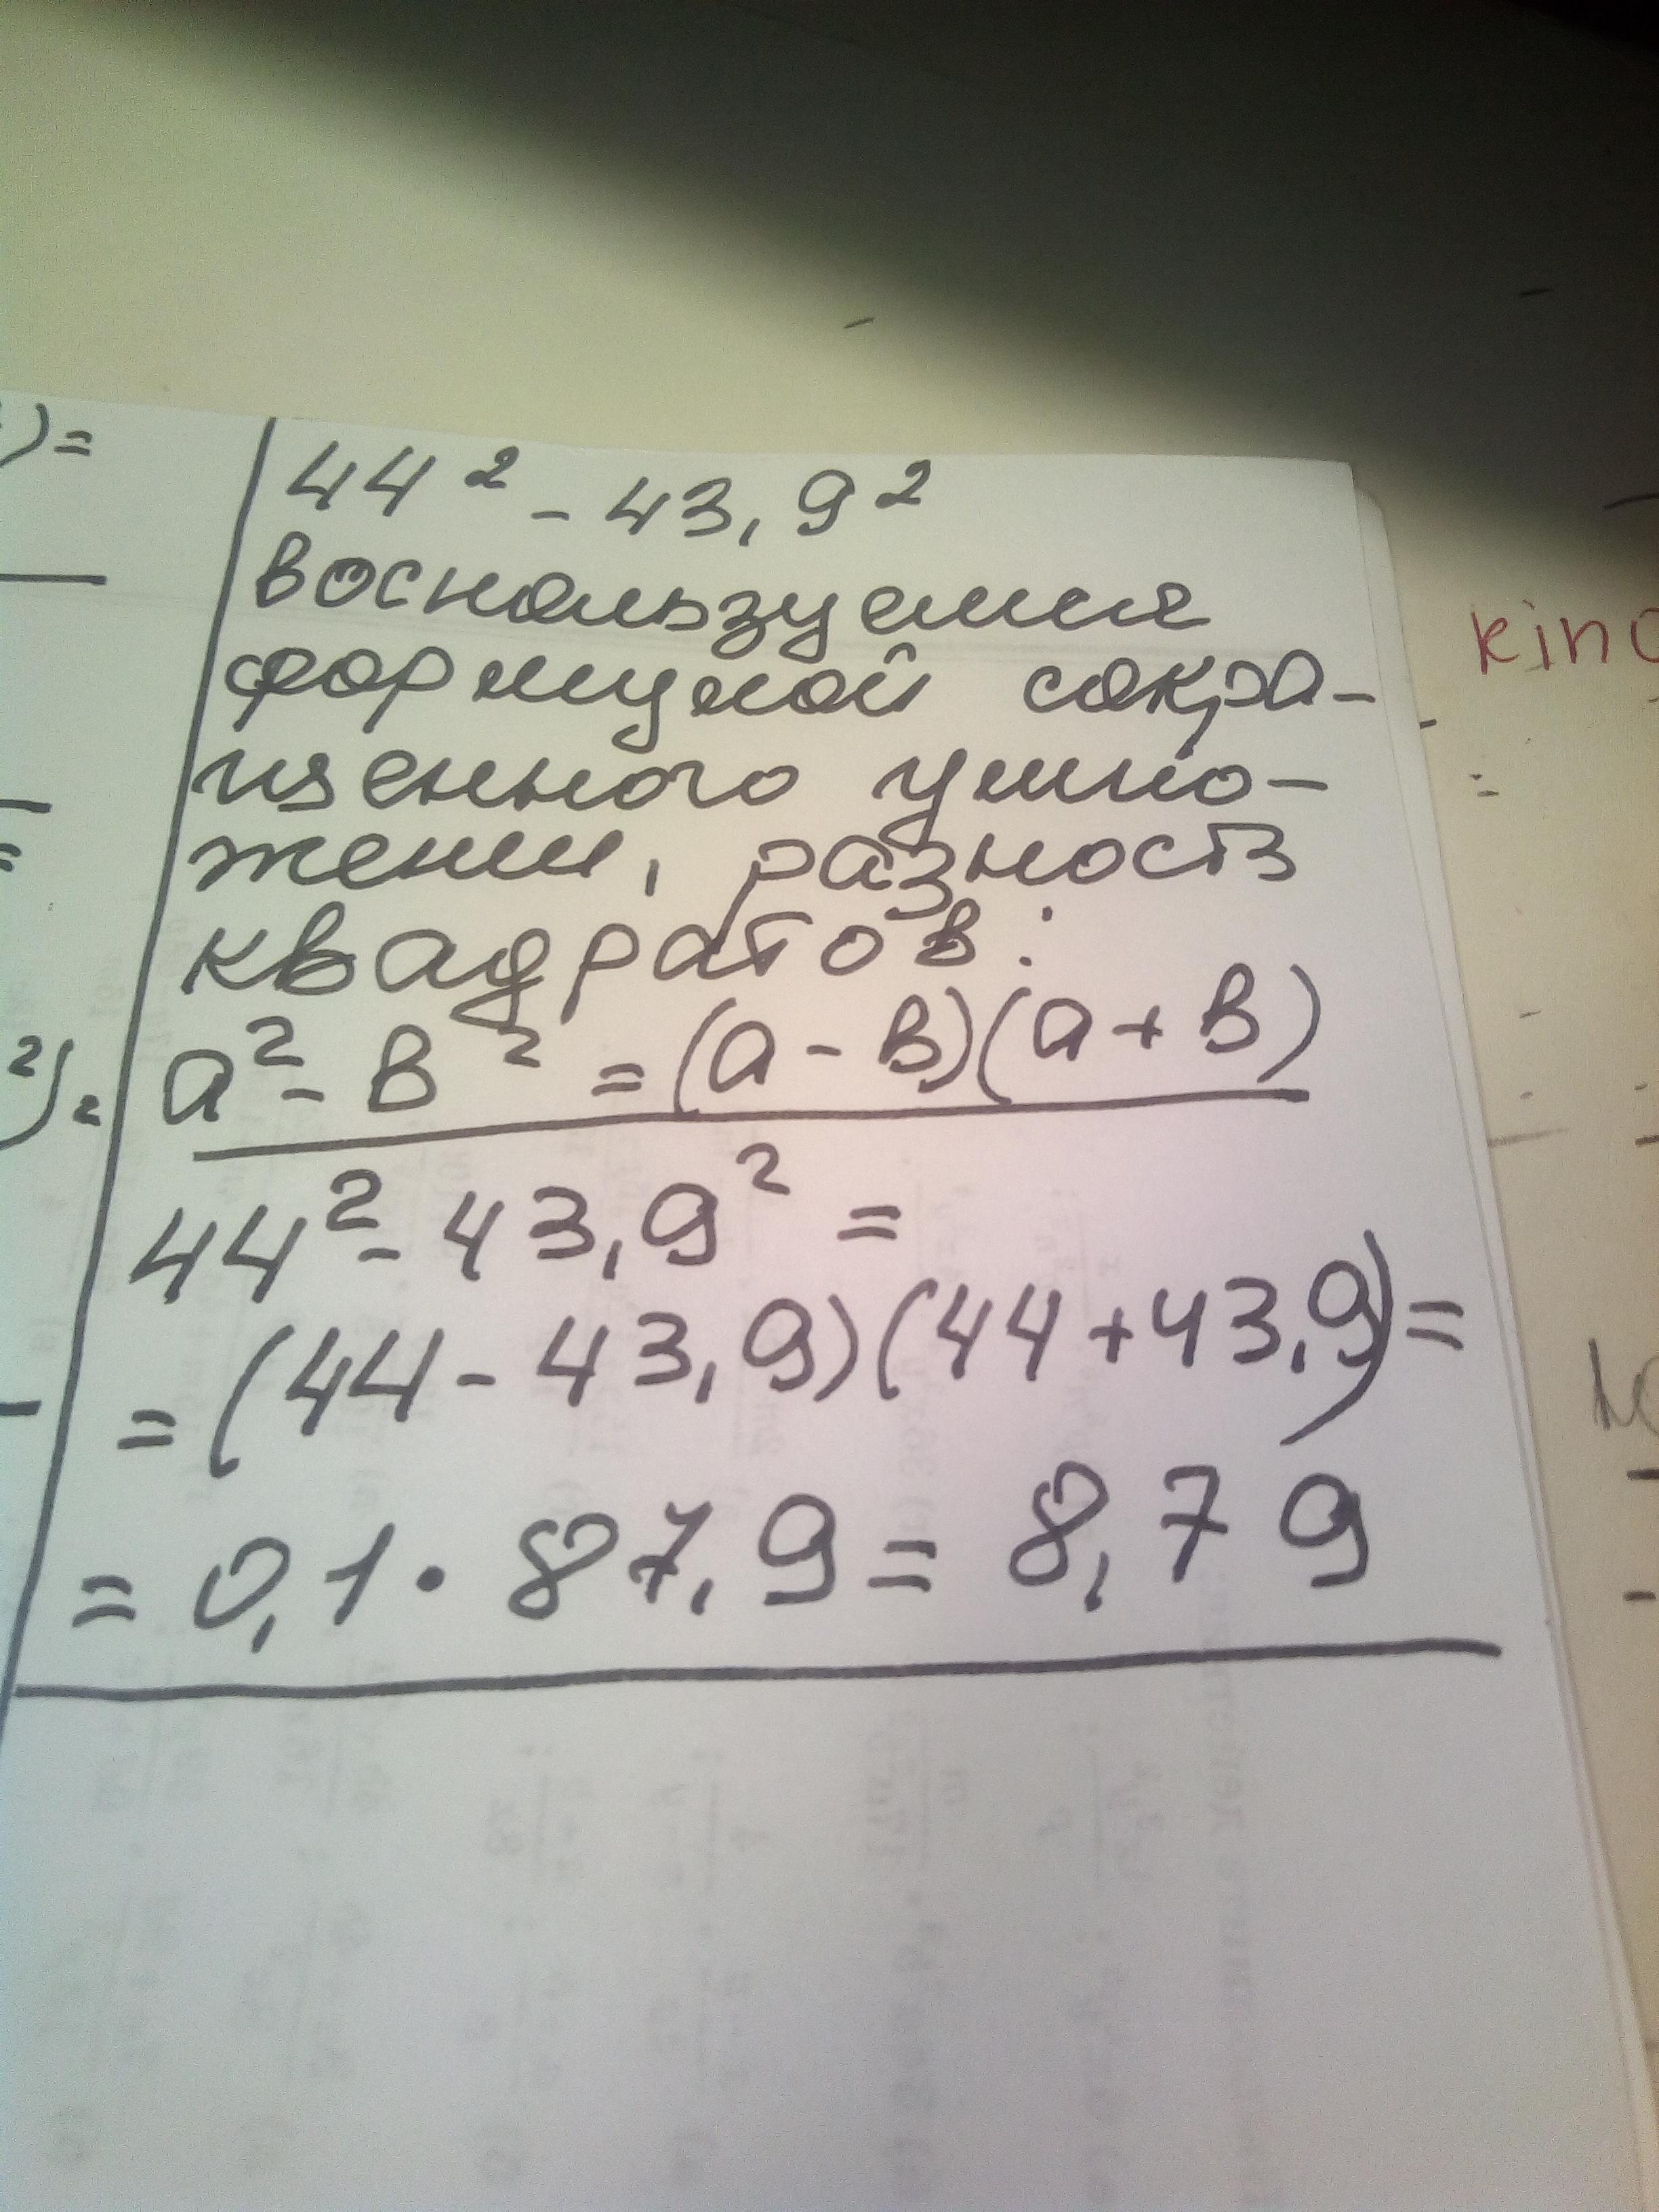 )=
44² - 43,9²
воспользуемся
формулой сокра-
щенного умно-
жения, разность
квадратов:
a² - в² = (a - в)(a + в)
44² - 43,9² =
= (44 - 43,9)(44 + 43,9) =
= 0,1 · 87,9 = 8,79
²)=
kino